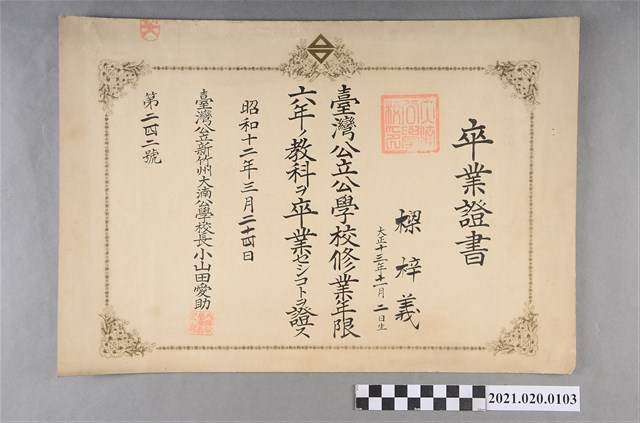 卒業證書
樑梓義
大正十三年十一月二日生
臺灣公立公學校修業年限
六年ノ教科ヲ卒業セシコトヲ證ス
昭和十二年三月二十四日
臺灣公立新竹州大湳公學校長小山田愛助
第二四二號
2021.020.0103